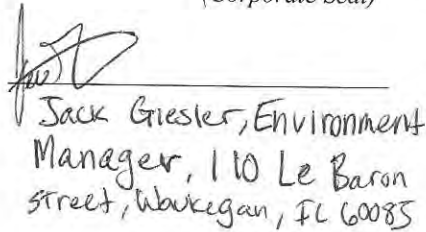 (Corporate Seal)
Jack Giesler, Environment
Manager, 110 Le Baron
Street, Waukegan, IL 60085